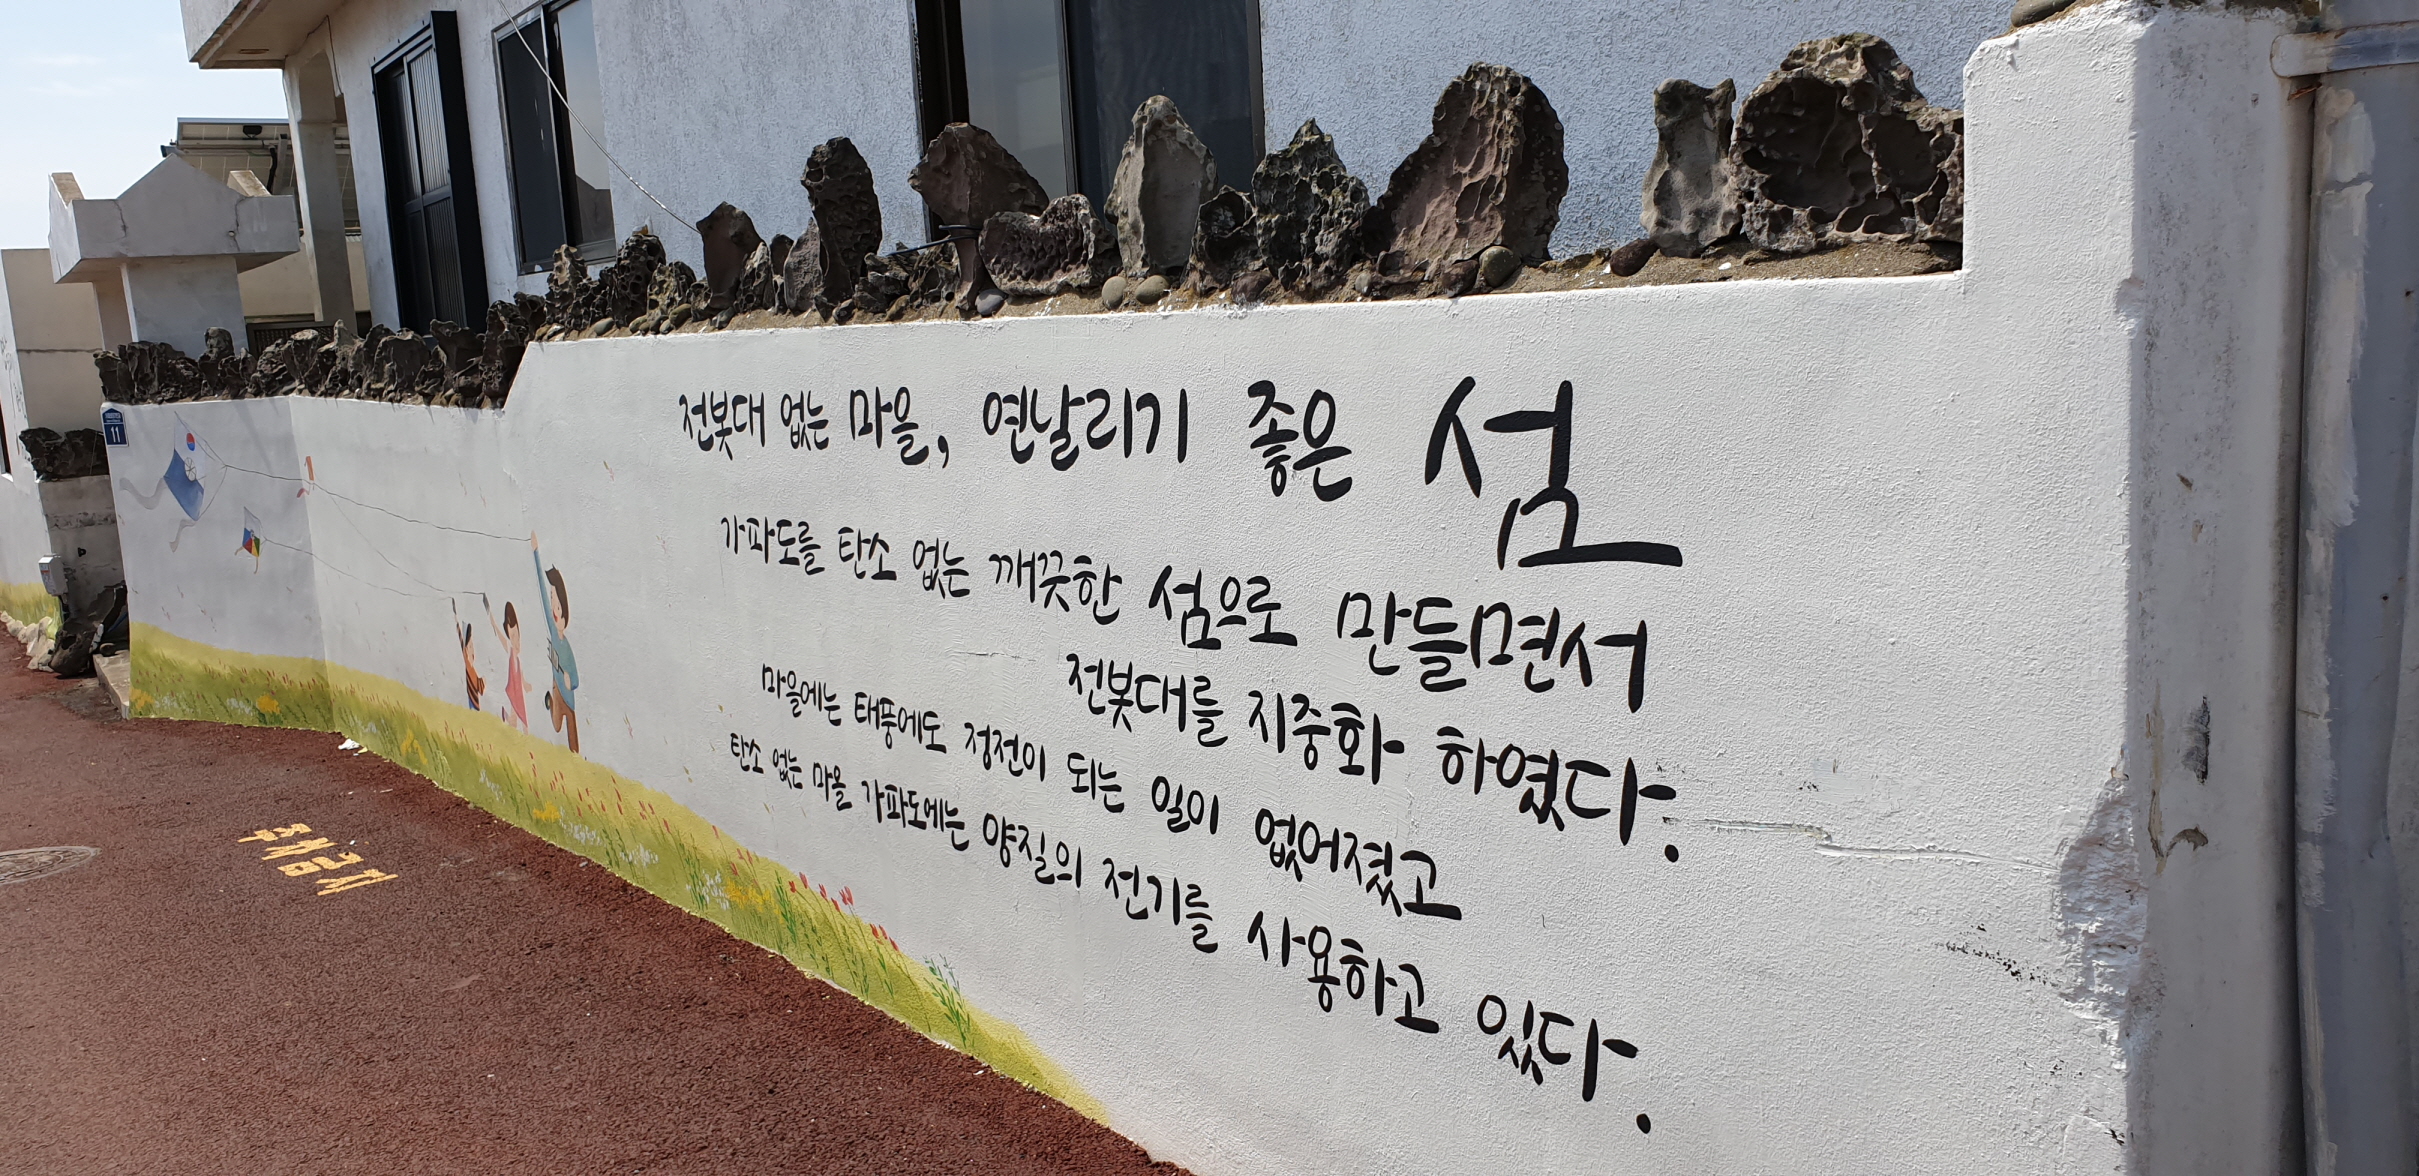 전봇대 없는 마을, 연날리기 좋은 섬
가파도를 탄소 없는 깨끗한 섬으로 만들면서
전봇대를 지중화 하였다.
마을에는 태풍에도 정전이 되는 일이 없어졌고
탄소 없는 마을 가파도에는 양질의 전기를 사용하고 있다.
11
주차금지